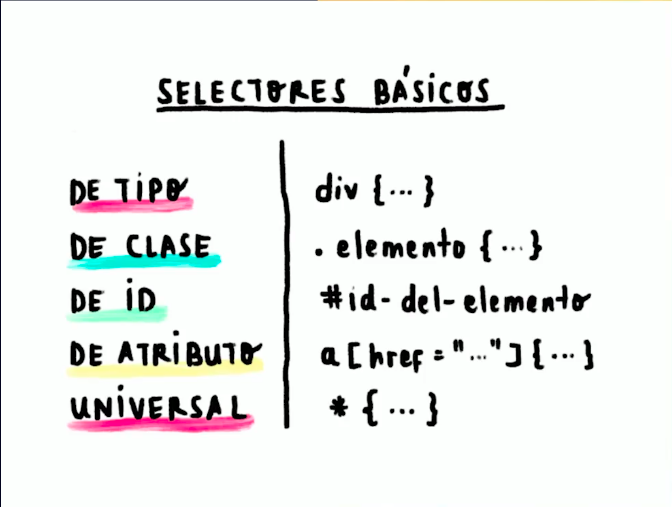 SELECTORES BÁSICOS
DE TiPO div {...}
DE CLASE . elemento {...}
DE iD #id-del-elemento
DE ATRiBUTO a[href="..."]{...}
UNiVERSAL * {...}